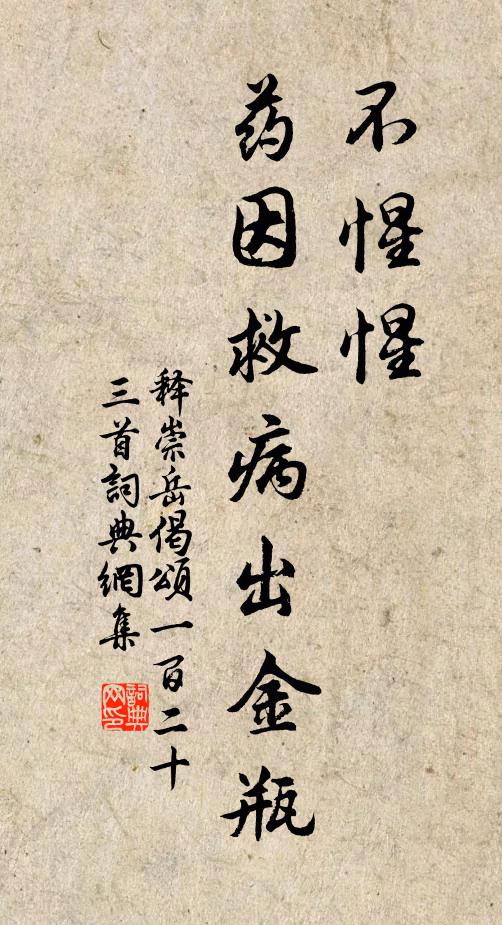 不惺惺
药因救病出金瓶
释崇岳偈頌一百二十
三首詞典網集
詞典
网印